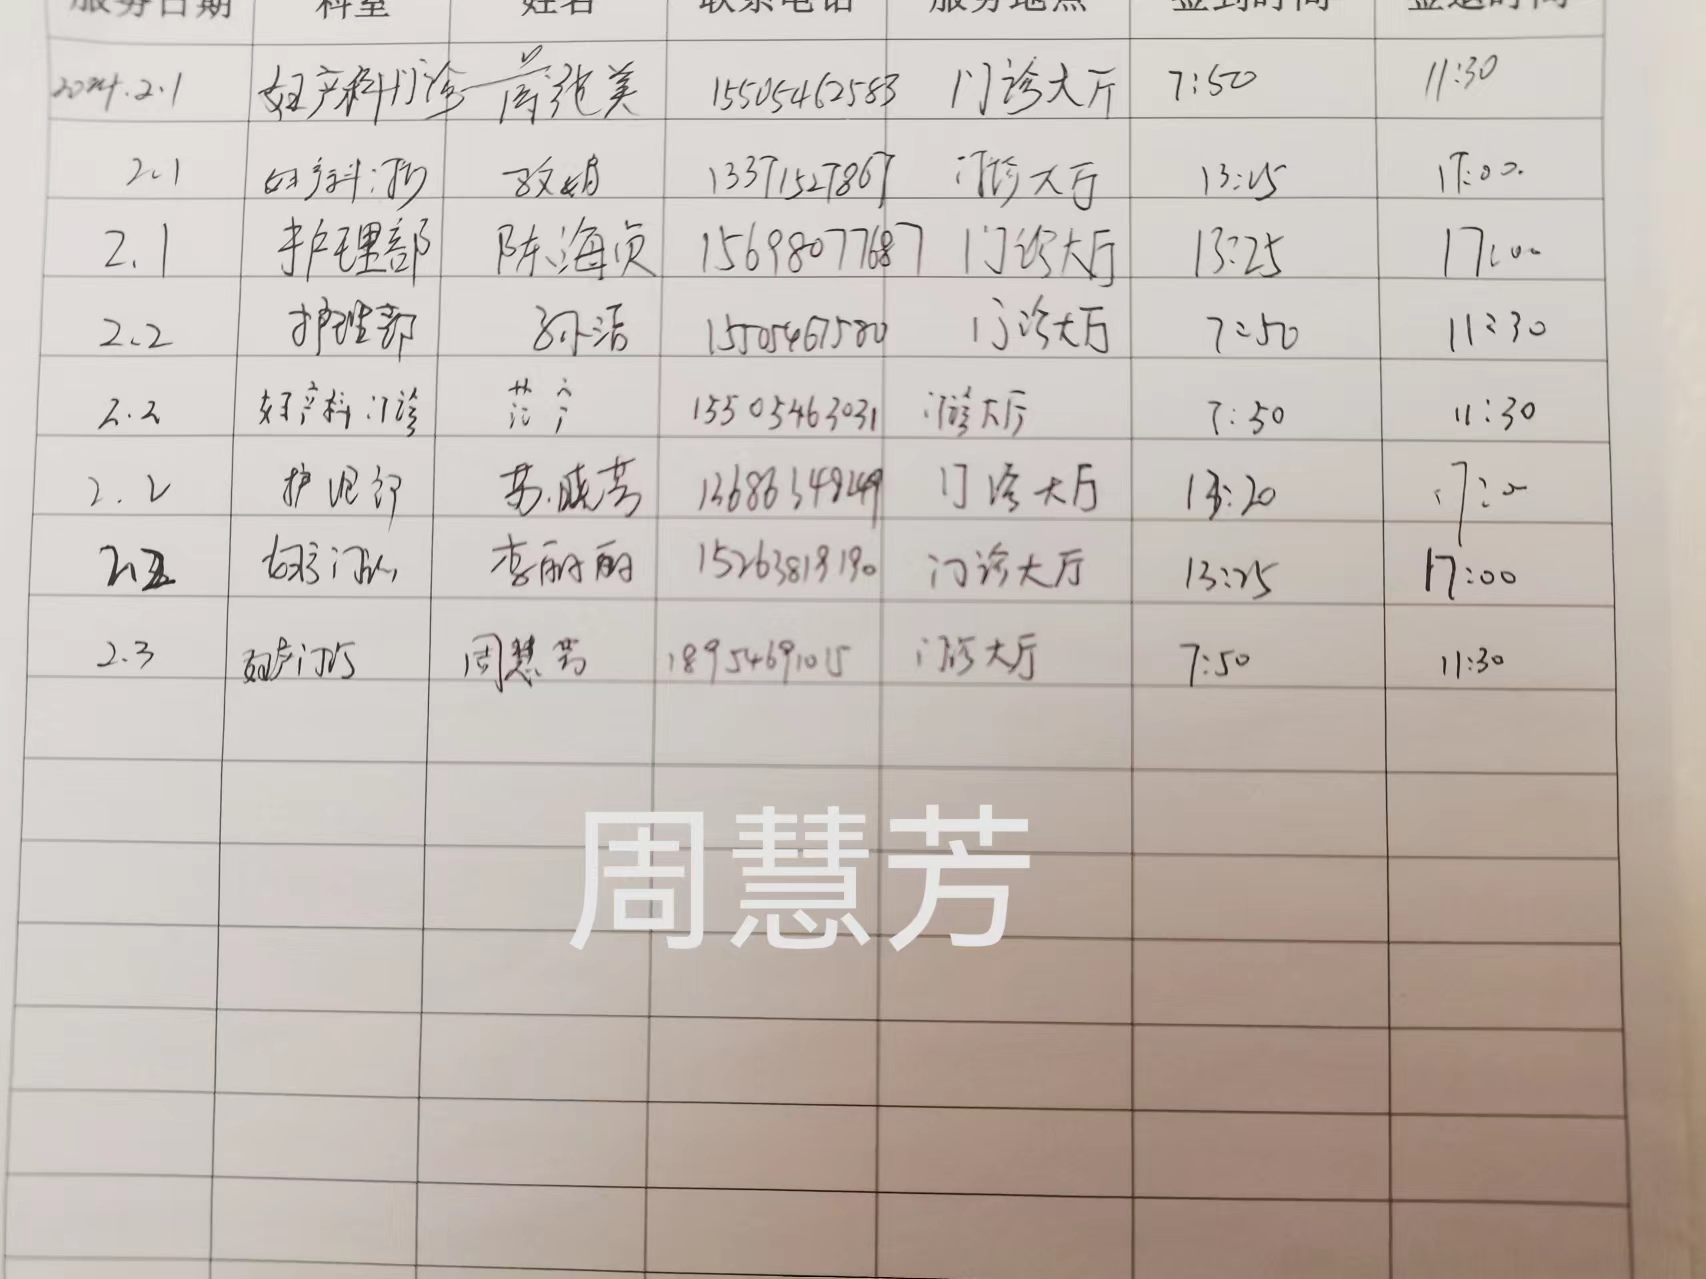 服务日期 科室 姓名 联系电话 服务地点 签到时间 签退时间
2024.2.1 妇产科门诊 美 15505462583 门诊大厅 7:50 11:30
2.1 妇产科门诊 13371527867 门诊大厅 13:25 17:00
2.1 护理部 陈海贞 15698077687 门诊大厅 13:25 17:00
2.2 护理部 孙洁 15505467580 门诊大厅 7:50 11:30
2.2 妇产科门诊 15505463031 门诊大厅 7:50 11:30
2.2 护理部 苏晓芳 门诊大厅 13:20 17:00
妇产门诊 李丽丽 门诊大厅 13:25 17:00
2.3 妇产门诊 周慧芳 18954691015 门诊大厅 7:50 11:30
周慧芳